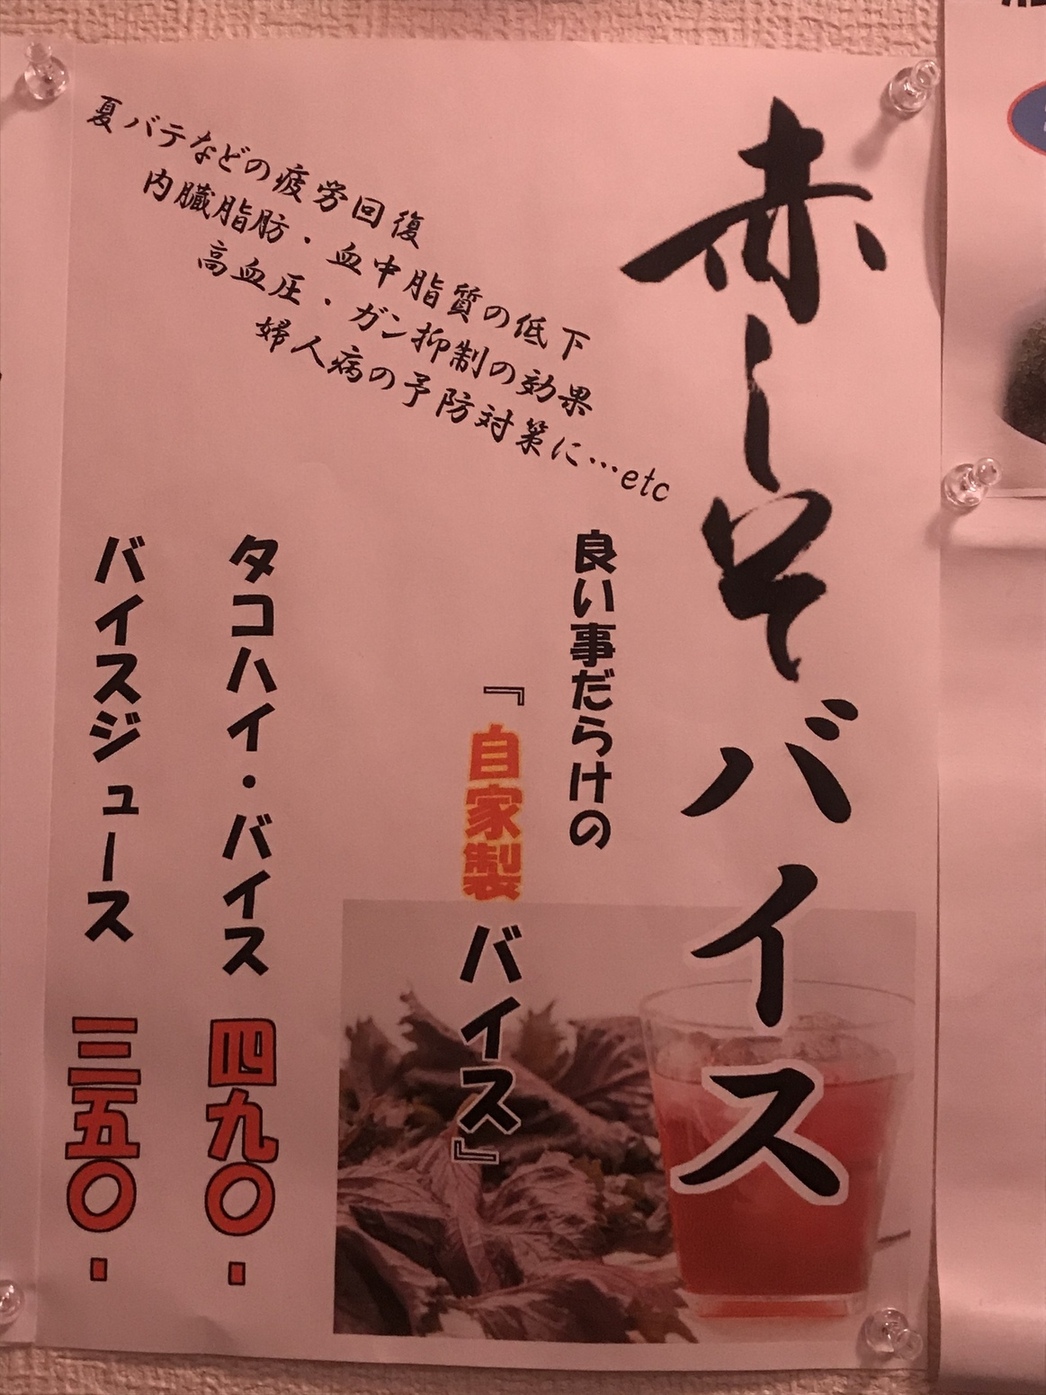 赤しそバイス
夏バテなどの疲労回復
内臓脂肪・血中脂質の低下
高血圧・ガン抑制の効果
婦人病の予防対策に…etc
良い事だらけの
『自家製バイス』
タコハイ・バイス 四九〇.
バイスジュース 三五〇.